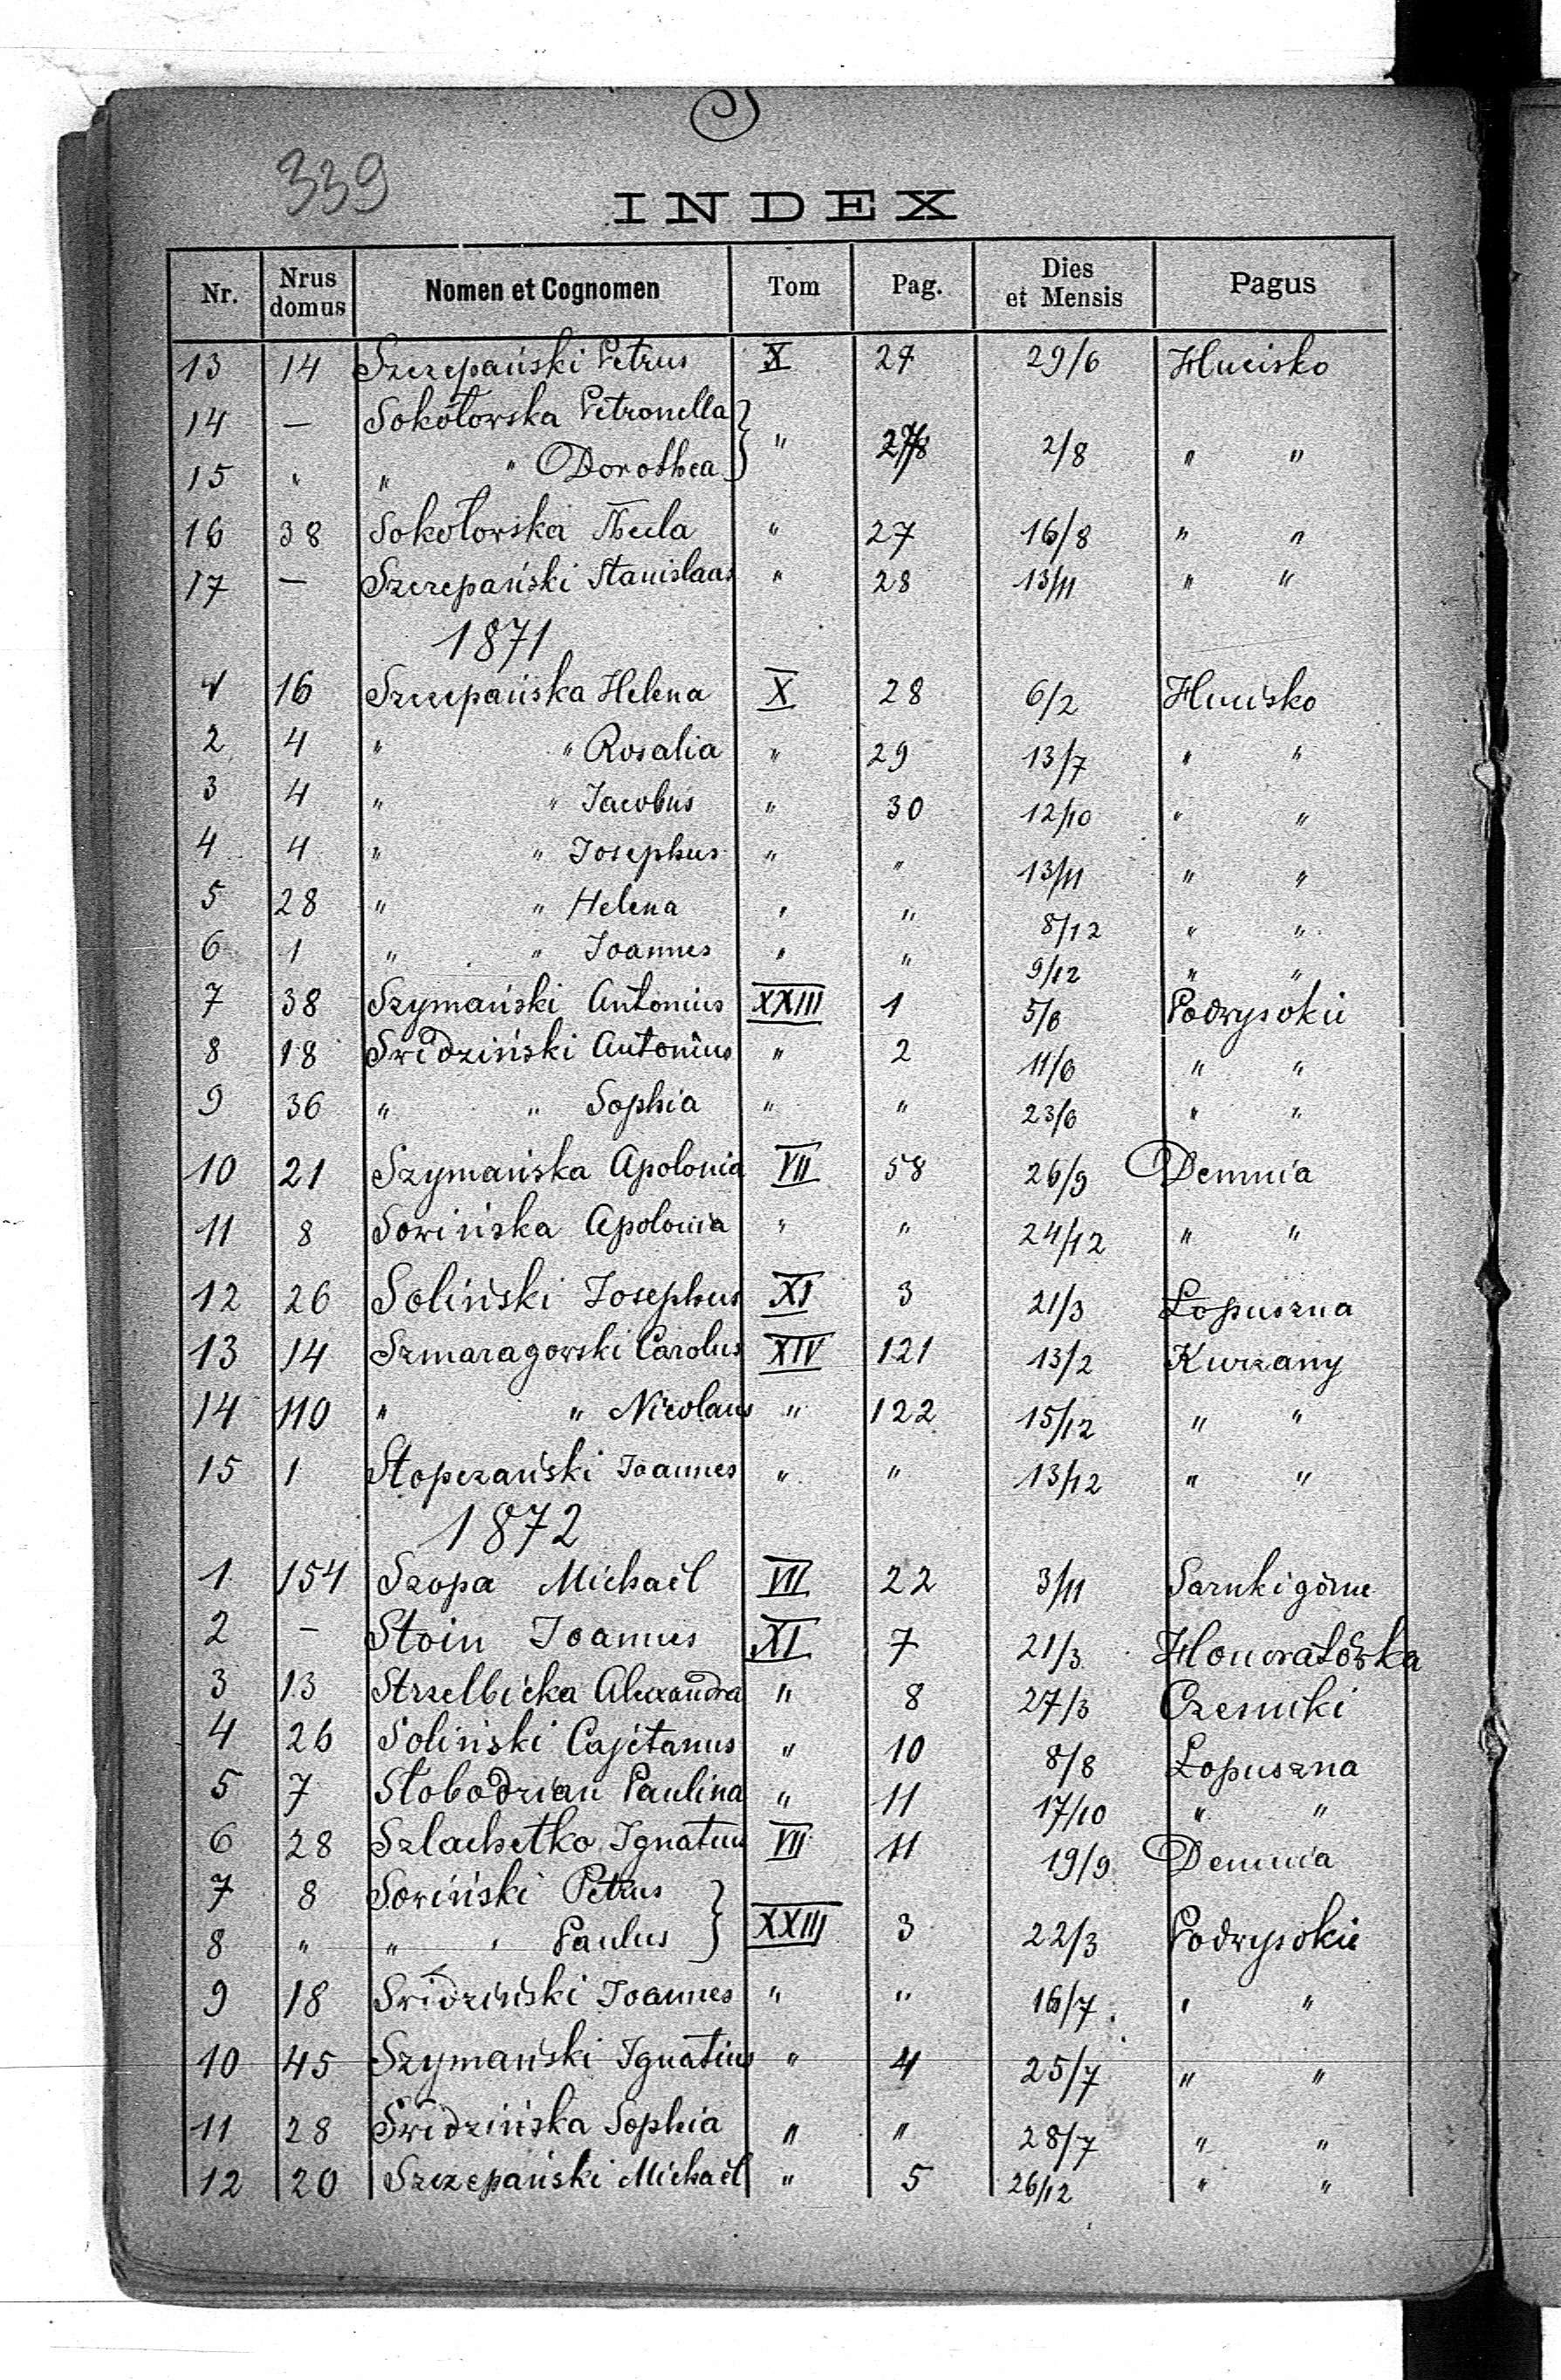 S
339
INDEX
Nr. | Nrus domus | Nomen et Cognomen | Tom | Pag. | Dies et Mensis | Pagus
13 | 14 | Szczepański Petrus | X | 27 | 29/6 | Hucisko
14 | — | Sokołowska Petronella } | " | 27/8 | 2/8 | " "
15 | " | " " Dorothea }
16 | 38 | Sokołowska Thecla | " | 27 | 16/8 | " "
17 | — | Szczepański Stanislaus | " | 28 | 13/11 | " "
1871
1 | 16 | Szczepańska Helena | X | 28 | 6/2 | Hucisko
2 | 4 | " " Rosalia | " | 29 | 13/7 | " "
3 | 4 | " " Jacobus | " | 30 | 12/10 | " "
4 | 4 | " " Josephus | " | " | 13/11 | " "
5 | 28 | " " Helena | " | " | 8/12 | " "
6 | 1 | " " Joannes | " | " | 9/12 | " "
7 | 38 | Szymański Antonius | XXIII | 1 | 5/6 | Podwysokie
8 | 18 | Swidziński Antonius | " | 2 | 11/6 | " "
9 | 36 | " " Sophia | " | " | 23/6 | " "
10 | 21 | Szymańska Apolonia | VII | 58 | 26/9 | Demnia
11 | 8 | Sowińska Apolonia | " | " | 24/12 | " "
12 | 26 | Soliński Josephus | XI | 3 | 21/3 | Łopuszna
13 | 14 | Szmaragowski Carolus | XIV | 121 | 13/2 | Kurzany
14 | 110 | " " Nicolaus | " | 122 | 15/12 | " "
15 | 1 | Stopczański Joannes | " | " | 13/12 | " "
1872
1 | 154 | Szopa Michaël | VII | 22 | 3/11 | Sarnki górne
2 | — | Stoin Joannes | XI | 7 | 21/3 | Honoratówka
3 | 13 | Strzelbicka Alexandra | " | 8 | 27/3 | Czesniki
4 | 26 | Soliński Cajetanus | " | 10 | 8/8 | Łopuszna
5 | 7 | Słobodzian Paulina | " | 11 | 17/10 | " "
6 | 28 | Szlachetko Ignatius | VII | 11 | 19/9 | Demnia
7 | 8 | Sowiński Petrus } | XXIII | 3 | 22/3 | Podwysokie
8 | " | " " Paulus }
9 | 18 | Swidziński Joannes | " | " | 16/7 | " "
10 | 45 | Szymański Ignatius | " | 4 | 25/7 | " "
11 | 28 | Swidzińska Sophia | " | " | 28/7 | " "
12 | 20 | Szczepański Michaël | " | 5 | 26/12 | " "